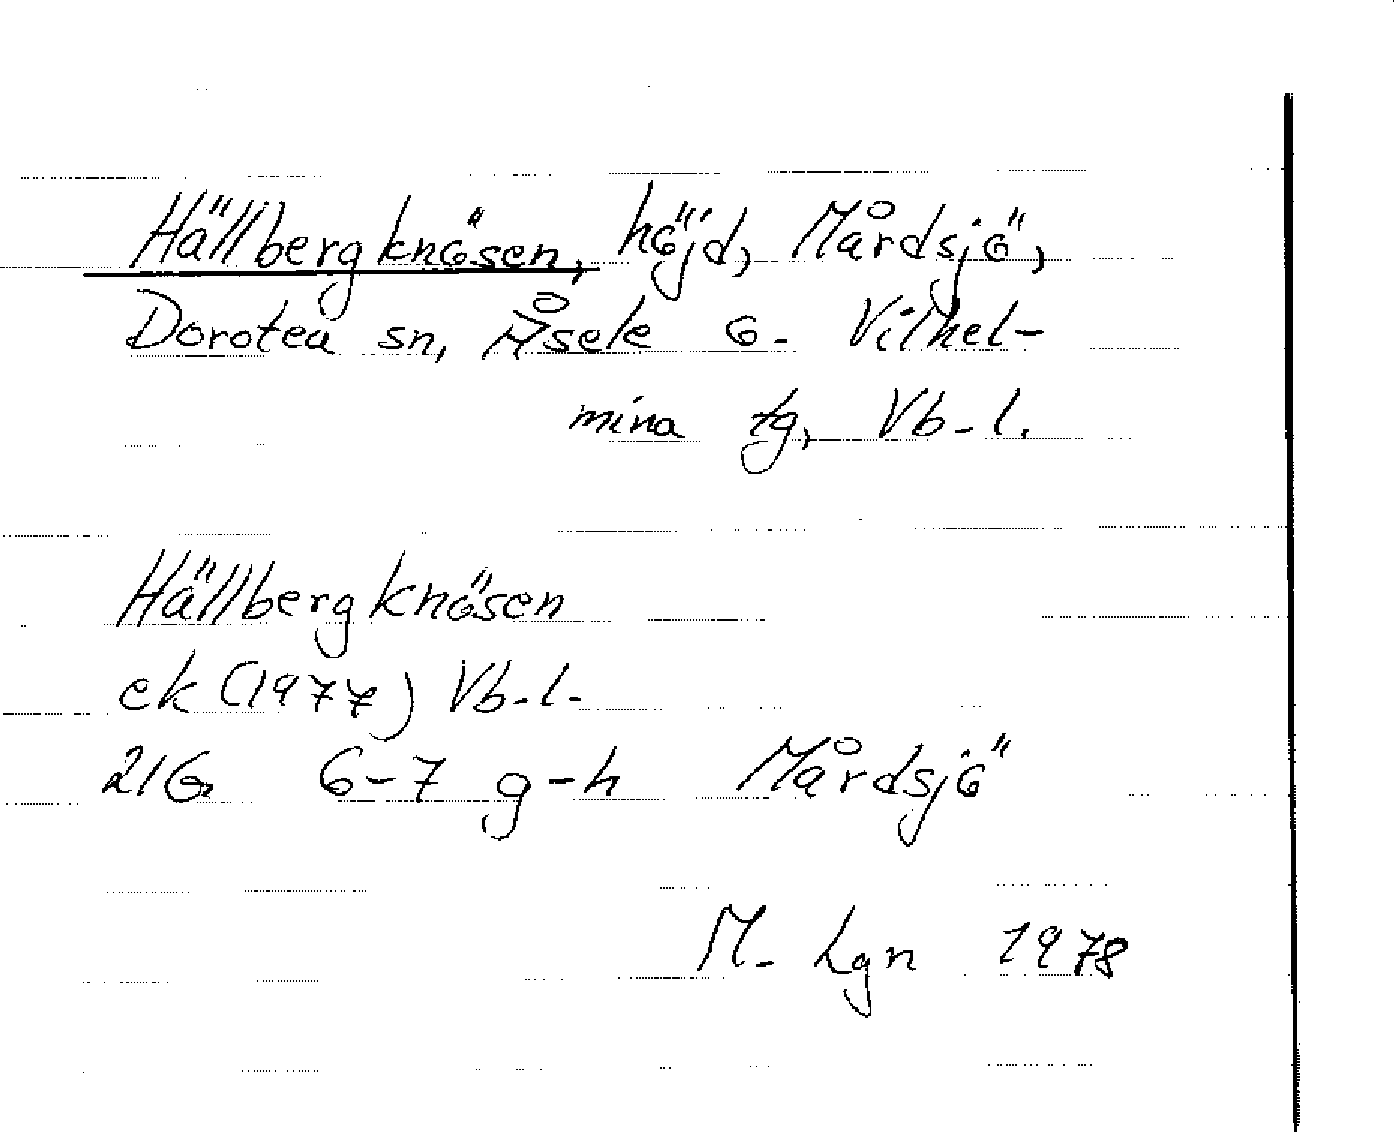 Hällbergknösen, höjd, Mårdsjö,
Dorotea sn, Åsele o. Vilhel-
mina tg, Vb. l.
Hällbergknösen
ek (1977) Vb. l.
21G. 6-7 g-h Mårdsjö
M. Lgn 1978